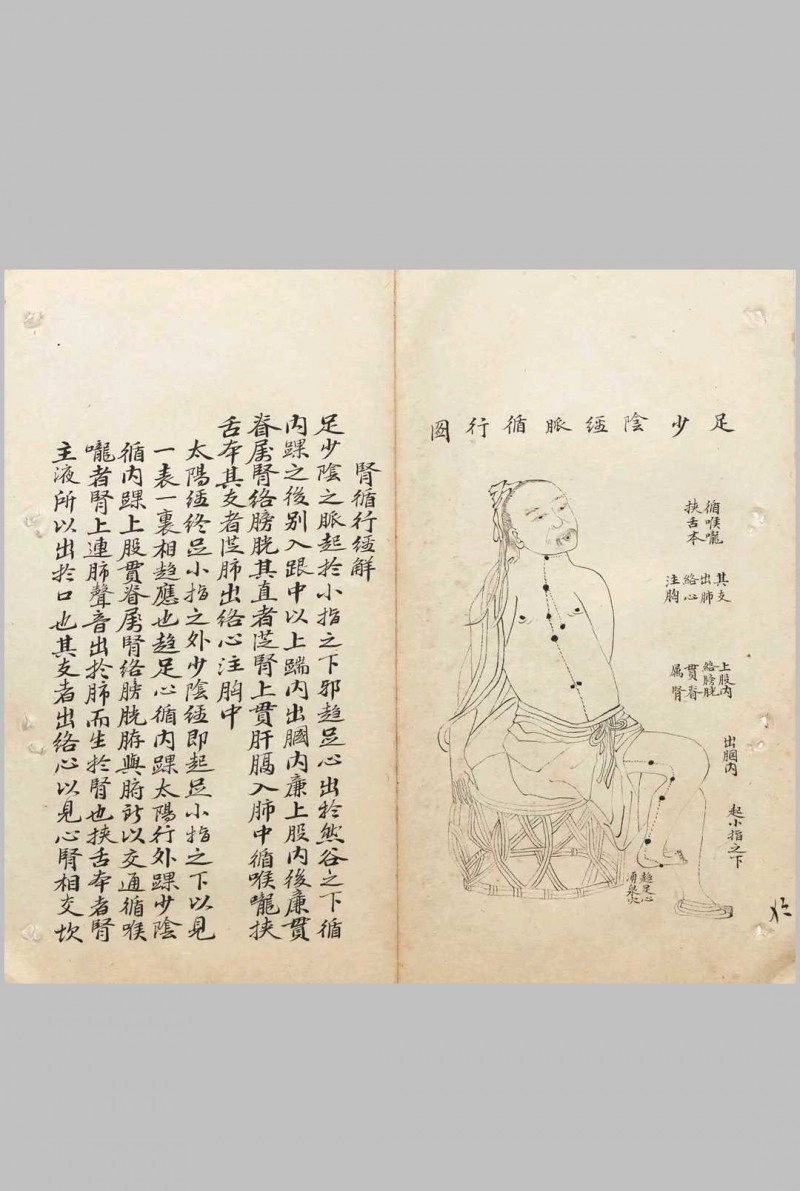 足少陰經脈循行圖
循喉嚨
挾舌本
其支
出肺
絡心
注胸
上股內
絡膀胱
貫脊
屬腎
出膕內
起小指之下
趨足心
湧泉穴
腎循行經解
足少陰之脈起於小指之下邪趨足心出於然谷之下循
內踝之後別入跟中以上踹內出膕內廉上股內後廉貫
脊屬腎絡膀胱其直者從腎上貫肝膈入肺中循喉嚨挾
舌本其支者從肺出絡心注胸中
太陽經終足小指之外少陰經即起足小指之下以見
一表一裏相趨應也趨足心循內踝太陽行外踝少陰
循內踝上股貫脊屬腎絡膀胱腑與臟所以交通循喉
嚨者腎上連肺聲音出於肺而生於腎也挾舌本者腎
主液所以出於口也其支者出絡心以見心腎相交坎